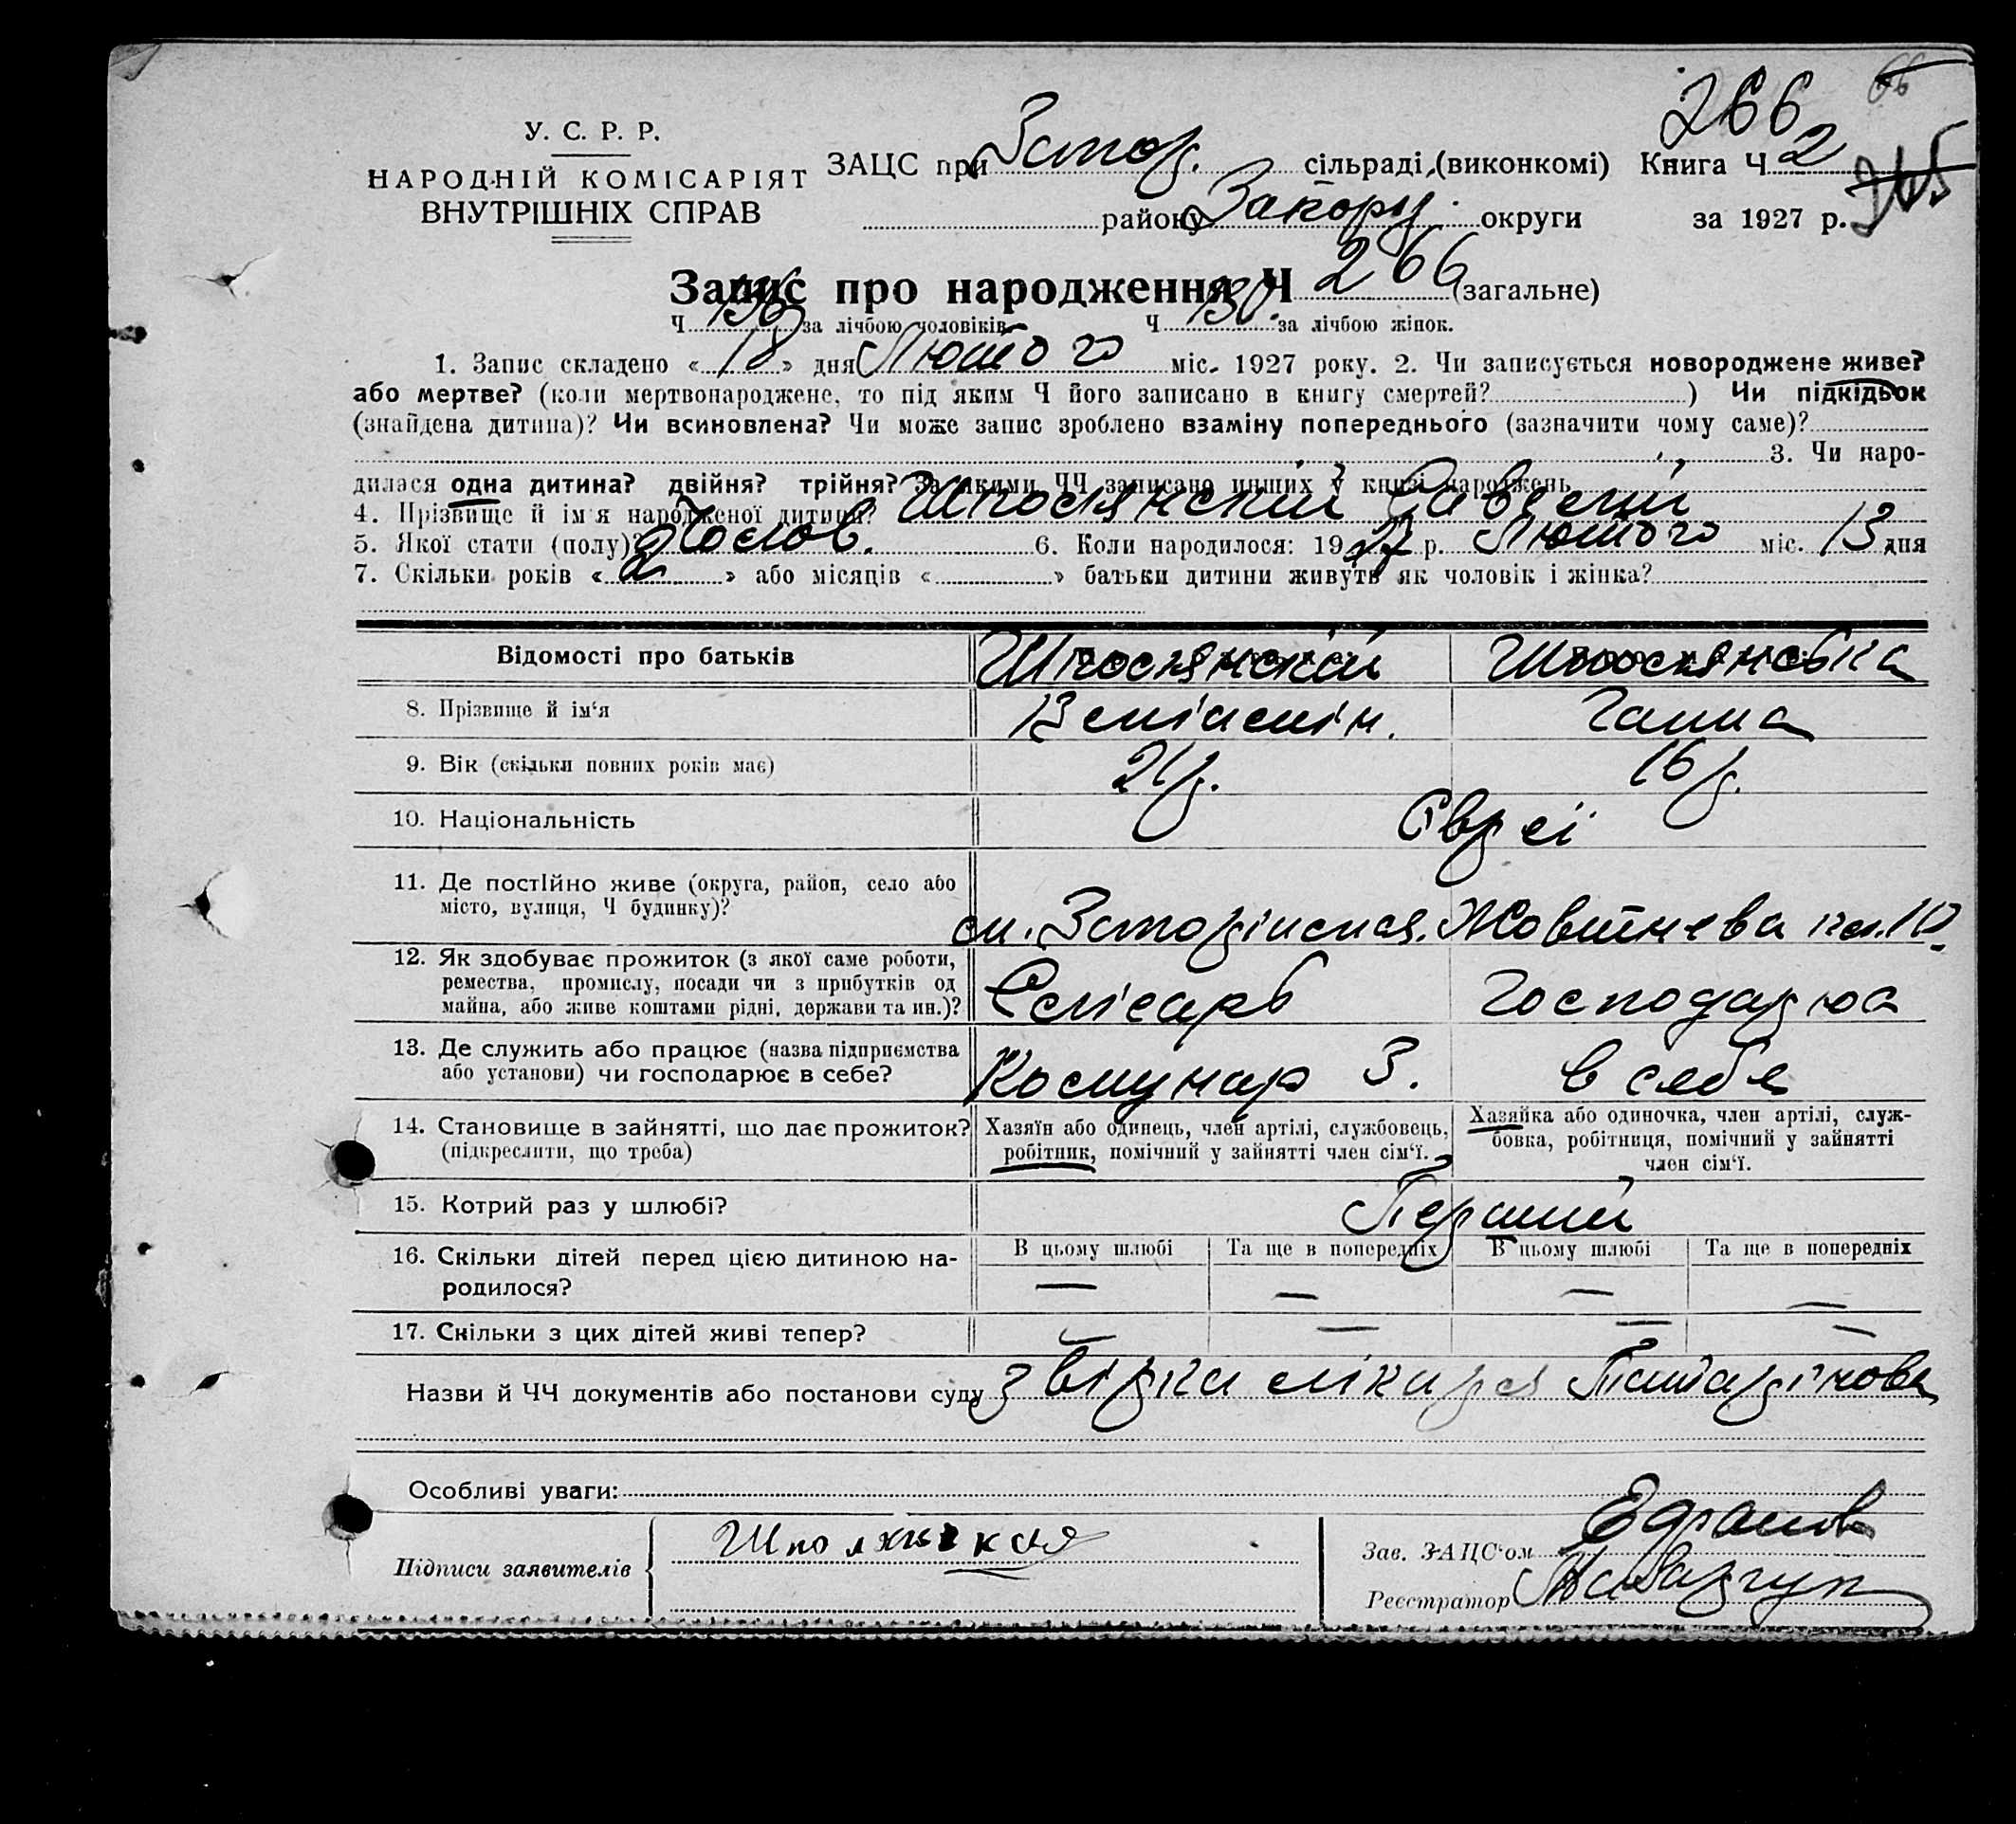 66
266
У. С. Р. Р.
НАРОДНІЙ КОМІСАРІЯТ
ВНУТРІШНІХ СПРАВ
ЗАЦС при Запор. сільраді, (виконкомі) Книга Ч 2
району Запоріз. округи за 1927 р. 265
Запис про народження Ч 266 (загальне)
Ч 136 за лічбою чоловіків Ч 130. за лічбою жінок.
1. Запис складено « 18 » дня Лютого міс. 1927 року. 2. Чи записується новороджене живе?
або мертве? (коли мертвонароджене, то під яким Ч його записано в книгу смертей? ) Чи підкідьок
(знайдена дитина)? Чи всиновлена? Чи може запис зроблено взаміну попереднього (зазначити чому саме)?
3. Чи наро-
дилася одна дитина? двійня? трійня? За якими ЧЧ записано инших у книзі народжень
4. Прізвище й ім'я народженої дитини? Шполянский Савелий
5. Якої стати (полу)? Чолов. 6. Коли народилося: 1927 р. Лютого міс. 13 дня
7. Скільки років « 2 » або місяців « » батьки дитини живуть як чоловік і жінка?
Відомості про батьків Шполянский Шполянська
8. Прізвище й ім‘я Веніамін. Ганна
9. Вік (скільки повних років має) 21 р. 16 р.
10. Національність Євреї
11. Де постІйно живе (округа, район, село або
місто, вулиця, Ч будинку)?
см. Запоріжжя. Жовтнева 10
12. Як здобуває прожиток (з якої саме роботи,
ремества, промислу, посади чи з прибутків од
майна, або живе коштами рідні, держави та ин.)?
Слісарь Господарює
13. Де служить або працює (назва підприємства
або установи) чи господарює в себе?
Комунар З. в себе
14. Становище в зайнятті, що дає прожиток?
(підкреслити, що треба)
Хазяїн або одинець, член артілі, службовець,
робітник, помічний у зайнятті член сім‘ї.
Хазяйка або одиночка, член артілі, служ-
бовка, робітниця, помічний у зайнятті
член сім‘ї.
15. Котрий раз у шлюбі? Перший
16. Скільки дітей перед цією дитиною на-
родилося?
В цьому шлюбі Та ще в попередніх В цьому шлюбі Та ще в попередніх
— — — —
17. Скільки з цих дітей живі тепер? — — — —
Назви й ЧЧ документів або постанови суду Звірка лікаря
Особливі уваги:
Підписи заявителів Шполянская
Зав. ЗАЦС‘ом
Реєстратор